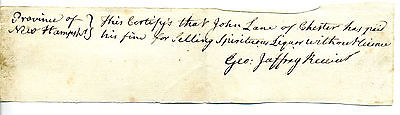 Province of } This Certify's that John Lane of Chester has paid
New Hampshr } his fine for Selling Spirituous Liquor without Licence
Geo: Jaffrey Receivr